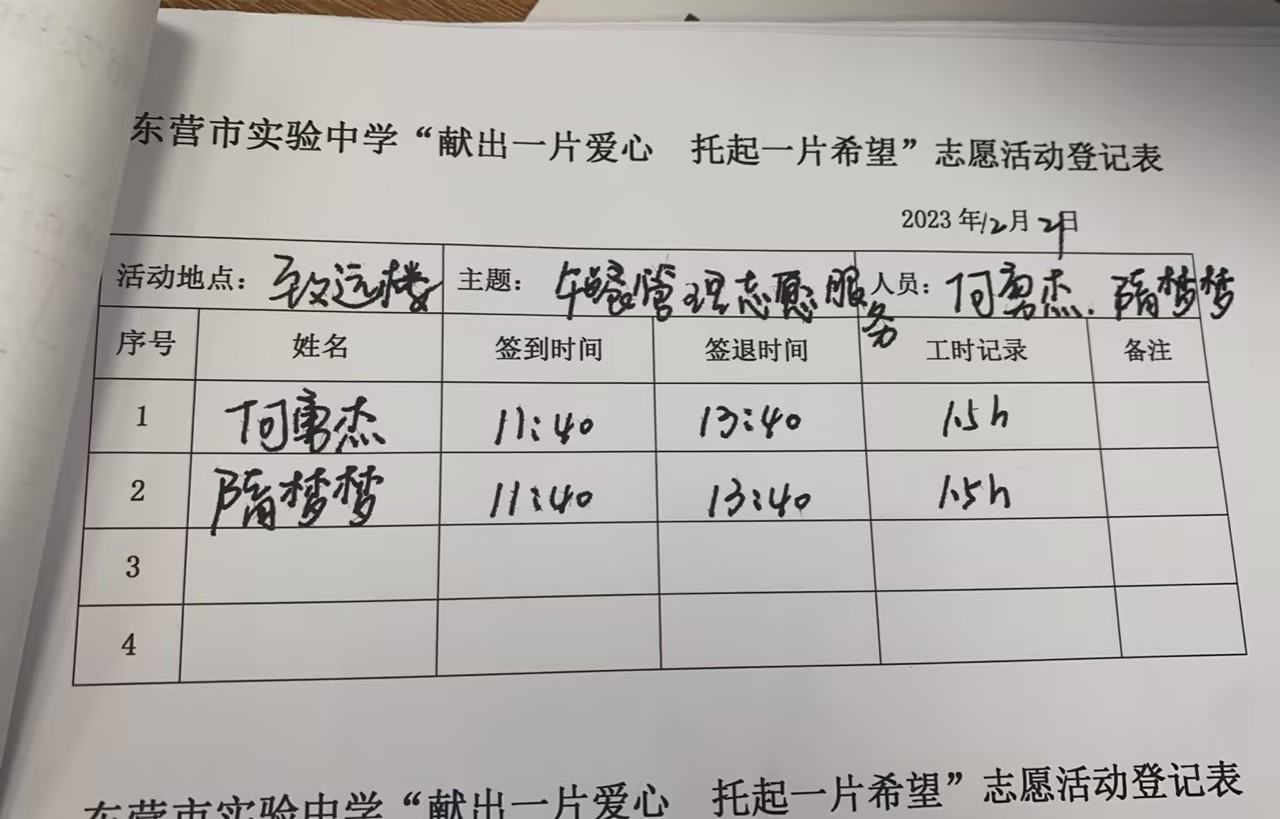 东营市实验中学“献出一片爱心 托起一片希望”志愿活动登记表
2023年12月21日
活动地点：致远楼 主题：午餐管理志愿服务 人员：何勇杰. 隋梦梦
序号 姓名 签到时间 签退时间 工时记录 备注
1 何勇杰 11:40 13:40 1.5h
2 隋梦梦 11:40 13:40 1.5h
3
4
东营市实验中学“献出一片爱心 托起一片希望”志愿活动登记表